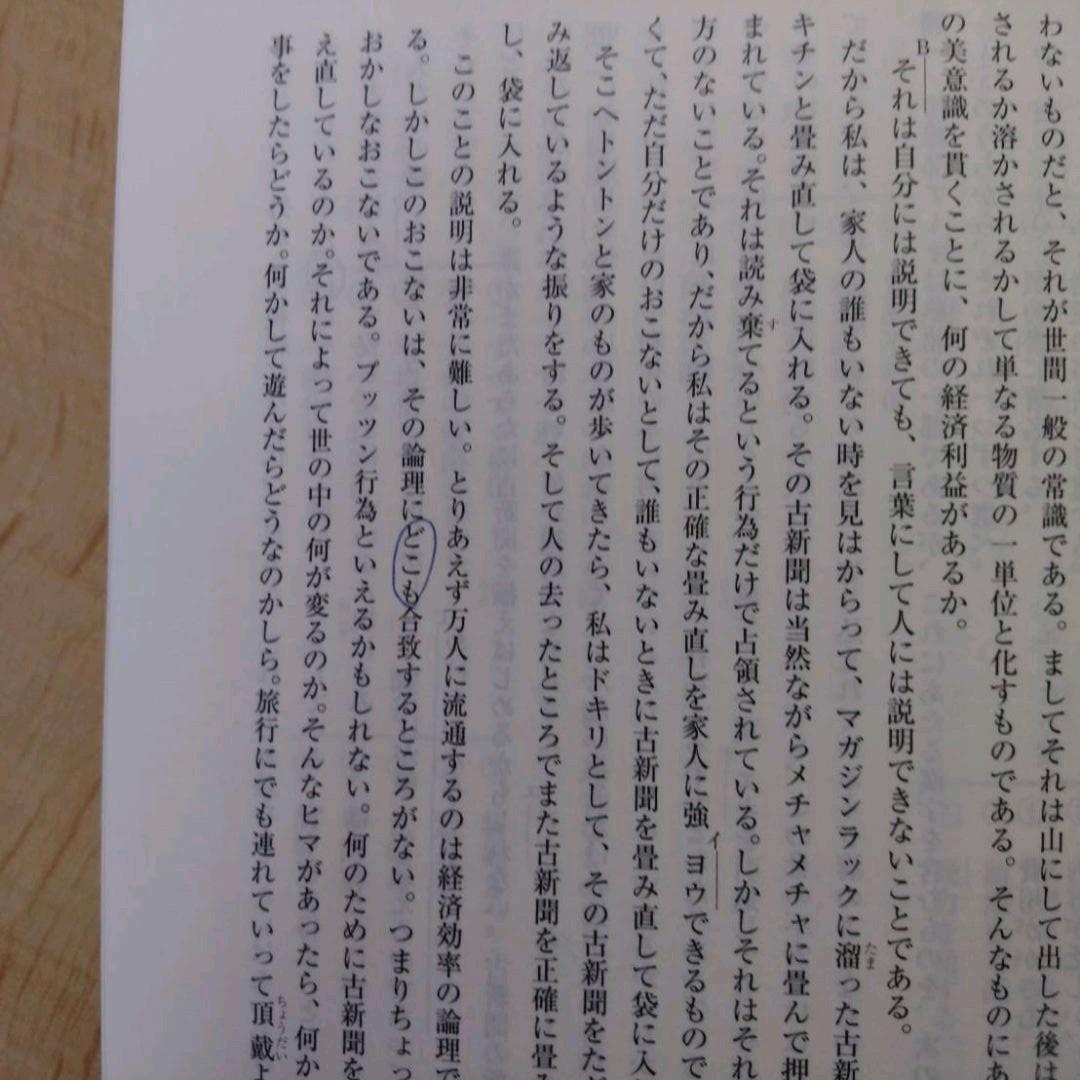 わないものだと、それが世間一般の常識である。ましてそれは山にして出した後は
されるか溶かされるかして単なる物質の一単位と化すものである。そんなものにあ
の美意識を貫くことに、何の経済利益があるか。
B それは自分には説明できても、言葉にして人には説明できないことである。
だから私は、家人の誰もいない時を見はからって、マガジンラックに溜（たま）った古新
キチンと畳み直して袋に入れる。その古新聞は当然ながらメチャメチャに畳んで押
まれている。それは読み棄（す）てるという行為だけで占領されている。しかしそれはそれ
方のないことであり、だから私はその正確な畳み直しを家人に強イヨウできるもので
くて、ただ自分だけのおこないとして、誰もいないときに古新聞を畳み直して袋に入
そこへトントンと家のものが歩いてきたら、私はドキリとして、その古新聞をただ
み返しているような振りをする。そして人の去ったところでまた古新聞を正確に畳み
し、袋に入れる。
このことの説明は非常に難しい。とりあえず万人に流通するのは経済効率の論理で
る。しかしこのおこないは、その論理にどこも合致するところがない。つまりちょっ
おかしなおこないである。プッツン行為といえるかもしれない。何のために古新聞を
え直しているのか。それによって世の中の何が変るのか。そんなヒマがあったら、何か
事をしたらどうか。何かして遊んだらどうなのかしら。旅行にでも連れていって頂戴（ちょうだい）よ